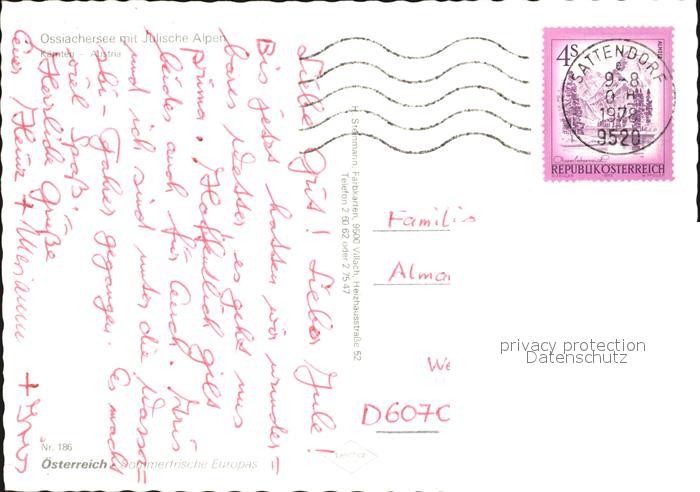 Ossiachersee mit Julische Alpen
Kärnten - Austria
Liebe Gust! Lieber Jule!
Bis jetzt hatten wir wunder-
bares Wetter es geht uns
prima. Hoffentlich gilt
beides auch für Euch. Iris
und ich sind unter die Wasser-
ski-Fahrer gegangen. Es macht
viel Spaß.
Herzliche Grüße
Eure Heinz + Meriann + Iris
Nr. 186
Österreich Sommerfrische Europas
H. Steinmann, Farbkarten, 9500 Villach, Heizhausstraße 52
Telefon 2 60 62 oder 2 75 47
4S
REPUBLIK ÖSTERREICH
SATTENDORF
9-8
1978
9520
Familie
Alma
We
D607C
privacy protection
Datenschutz